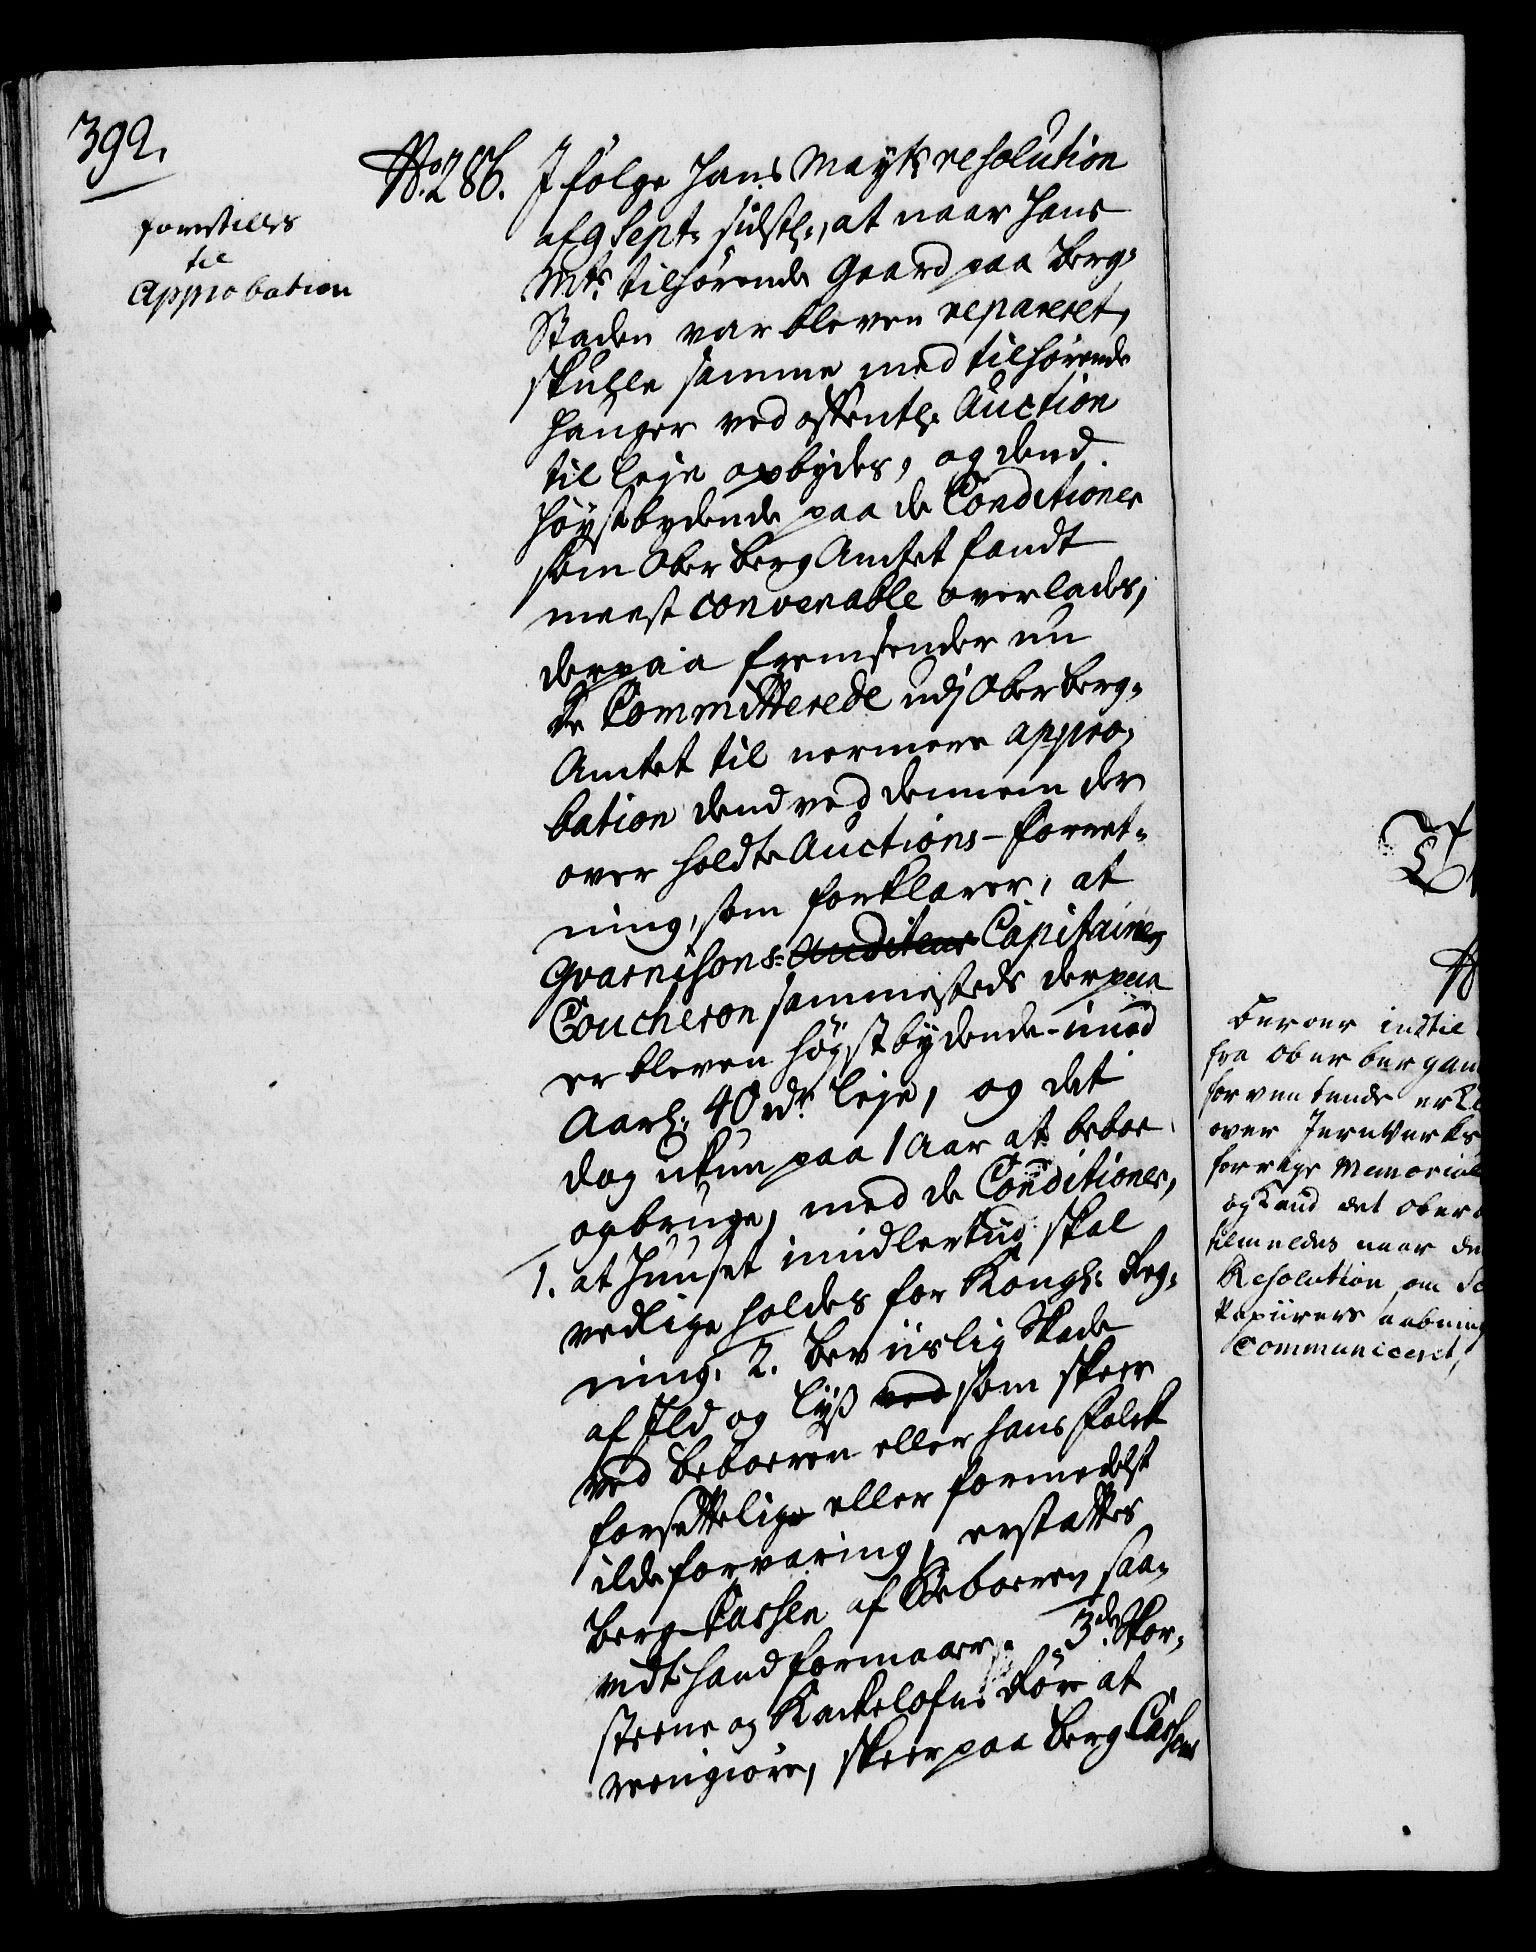 392.
forestilles
til
Approbation
No. 286. I følge Hans Mayts resolution
af 9 Sept: sidstl:, at naar Hans
Mts. tilhørende Gaard paa Berg-
Staden var bleven repareret,
skulle samme med tilhørende
Hauger ved offentl: Auction
til leje opbydes, og dend
høystbydende paa de Conditioner
som Ober Berg Amtet fandt
meest convenable overlades,
derpaa fremsender nu
de Committerede udj Ober Berg-
Amtet til nermere appro-
bation dend ved dennem der
over holdte Auctions-forret-
ning, som forklarer, at
Guarnisons- Auditeur Capitaine
Coucheron sammesteds derpaa
er bleven høystbydende imod
Aarl: 40 rdr. leje, og det
dog ikun paa 1 Aar at beboe
og bruge, med de Conditioner,
1. at Huuset imidlertiid skal
vedlige holdes for Kongl: Reg-
ning. 2. Beviislig Skade
af Ild og lyß ved som skeer
ved Beboeren eller hans Folck
forsettelige eller formedelst
ilde forvaring, erstattes
Berg Cassen af Beboeren saa-
vidt hand formaaer. 3de Skor-
steene og Kackelofne Rør at
reengiøre, skeer paa Berg Cassens
Beroer indtil
fra Ober bergam
forventende erkl
over Jernverks
forrige Memorial
og kand det Ober
tilmeldes naar de
Resolution om
Papiirers aabning
communiceret,